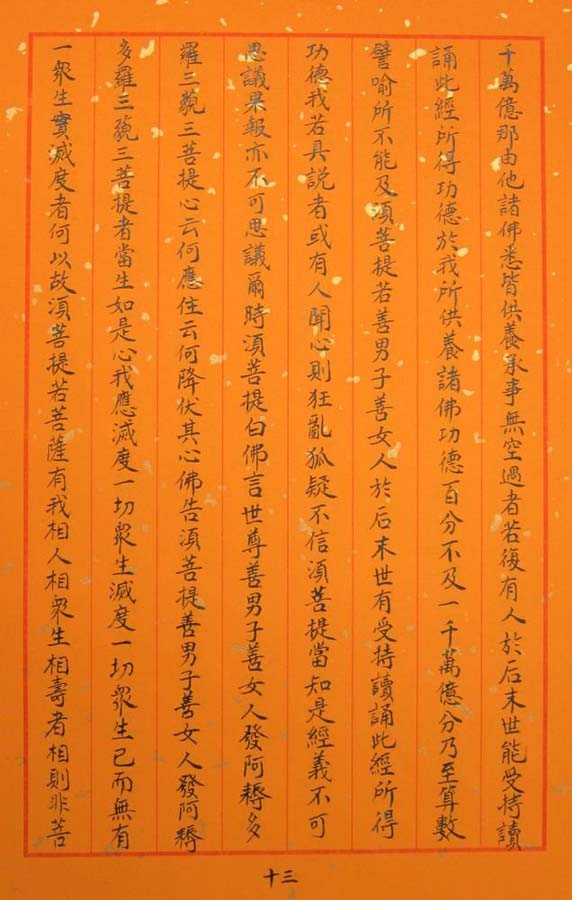 千萬億那由他諸佛悉皆供養承事無空過者若復有人於后末世能受持讀
誦此經所得功德於我所供養諸佛功德百分不及一千萬億分乃至算數
譬喻所不能及須菩提若善男子善女人於后末世有受持讀誦此經所得
功德我若具説者或有人聞心則狂亂狐疑不信須菩提當知是經義不可
思議果報亦不可思議爾時須菩提白佛言世尊善男子善女人發阿耨多
羅三藐三菩提心云何應住云何降伏其心佛告須菩提善男子善女人發阿耨
多羅三藐三菩提者當生如是心我應滅度一切眾生滅度一切眾生已而無有
一眾生實滅度者何以故須菩提若菩薩有我相人相眾生相壽者相則非菩
十三